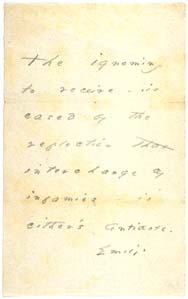 The ignominy
to receive - is
eased by the
reflection that
interchange of
infamies - is
either's antidote.
Emily.